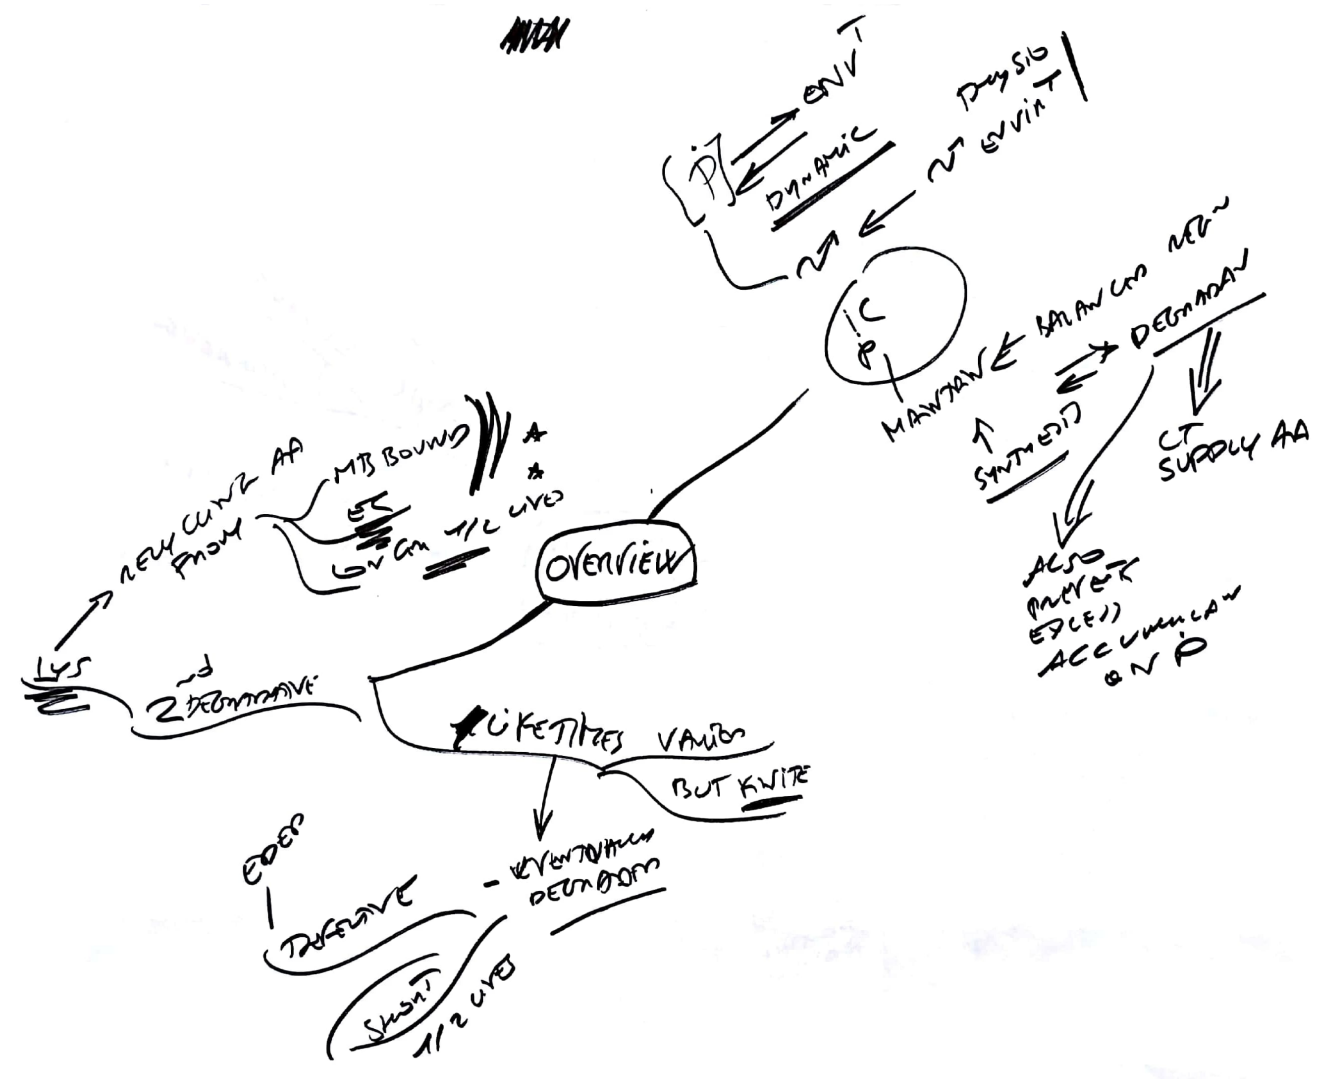 ENVT
[P]
DYNAMIC
PHYSIO
ENVIRT
IC
P
MAINTAIN
BALANCED REGN
DEGRADAN
SYNTHESIS
CT
SUPPLY AA
ALSO
PREVENT
EXCESS
ACCUMULAN
ON P
OVERVIEW
RECYCLING AA
FROM
MB BOUND
EC
LONG 1/2 LIVES
LYS
2nd DEGRADATIVE
LIFETIMES VARIES
BUT FINITE
- EVENTUALLY
DEGRADED
DEFECTIVE
SHORT
1/2 LIVES